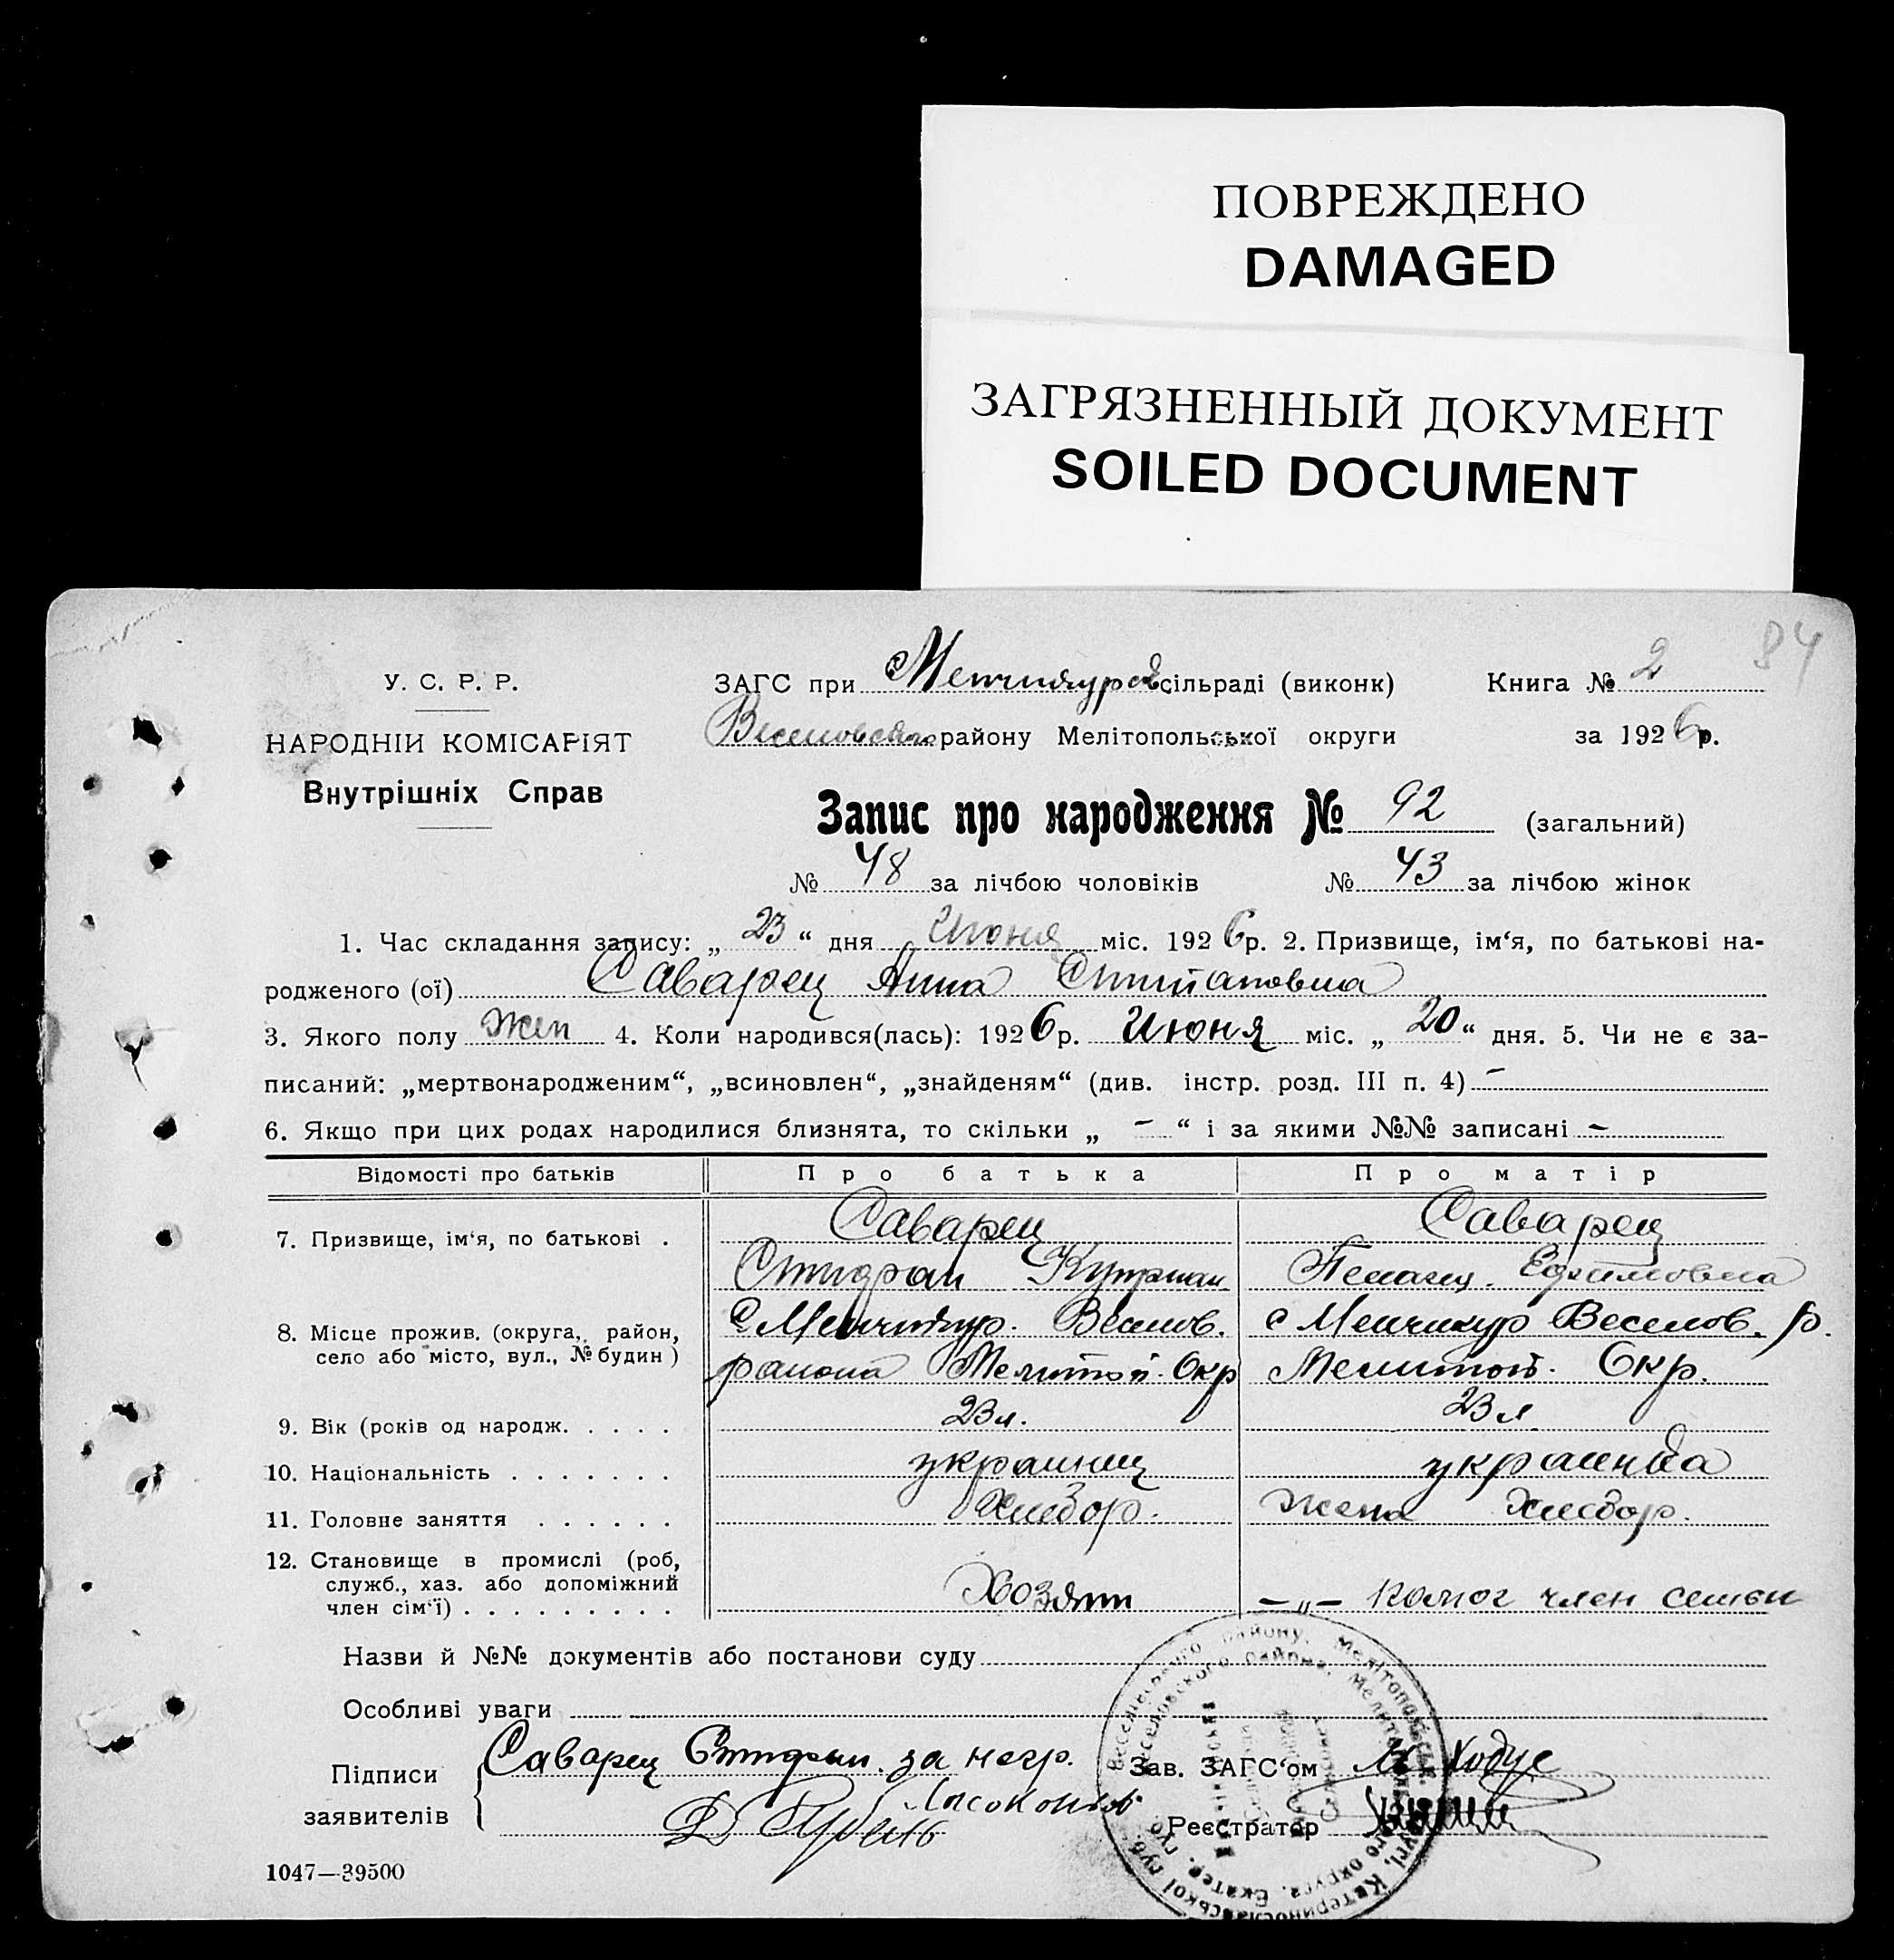 ПОВРЕЖДЕНО
DAMAGED
ЗАГРЯЗНЕННЫЙ ДОКУМЕНТ
SOILED DOCUMENT
84
У. С. Р. Р.
НАРОДНІЙ КОМІСАРІЯТ
Внутрішніх Справ
ЗАГС при Менчикурск. сільраді (виконк)
Книга № 2
Веселовского району Мелітопольської округи
за 1926 р.
Запис про народження № 92 (загальний)
№ 48 за лічбою чоловіків № 43 за лічбою жінок
1. Час складання запису: „ 23 “ дня Июня міс. 1926 р. 2. Призвище, ім‘я, по батькові на-
родженого (ої) Саварец Анна Степановна
3. Якого полу Жен 4. Коли народився(лась): 1926 р. Июня міс. „ 20 “ дня. 5. Чи не є за-
писаний: „мертвонародженим“, „всиновлен“, „знайденям“ (див. інстр. розд. III п. 4) -
6. Якщо при цих родах народилися близнята, то скільки „ - “ і за якими №№ записані -
Відомості про батьків Про батька Про матір
7. Призвище, ім‘я, по батькові . Саварец Саварец
Ефимовна
8. Місце прожив. (округа, район, с Менчикур. Веселов. с Менчикур Веселов. р.
село або місто, вул., № будин) района Мелитоп. Окр Мелитоп. Окр.
9. Вік (років од народж. . . . . 23 л. 23 л
10. Національність . . . . . . . украинец украинка
11. Головне заняття . . . . . . Хлебор. Жена Хлебор.
12. Становище в промислі (роб,
служб., хаз. або допоміжний
член сім‘ї) . . . . . . . . . Хозяин — „ — член семьи
Назви й №№ документів або постанови суду
Особливі уваги
Підписи
заявителів
Саварец за негр.
Зав. ЗАГС‘ом
Реєстратор
1047—39500